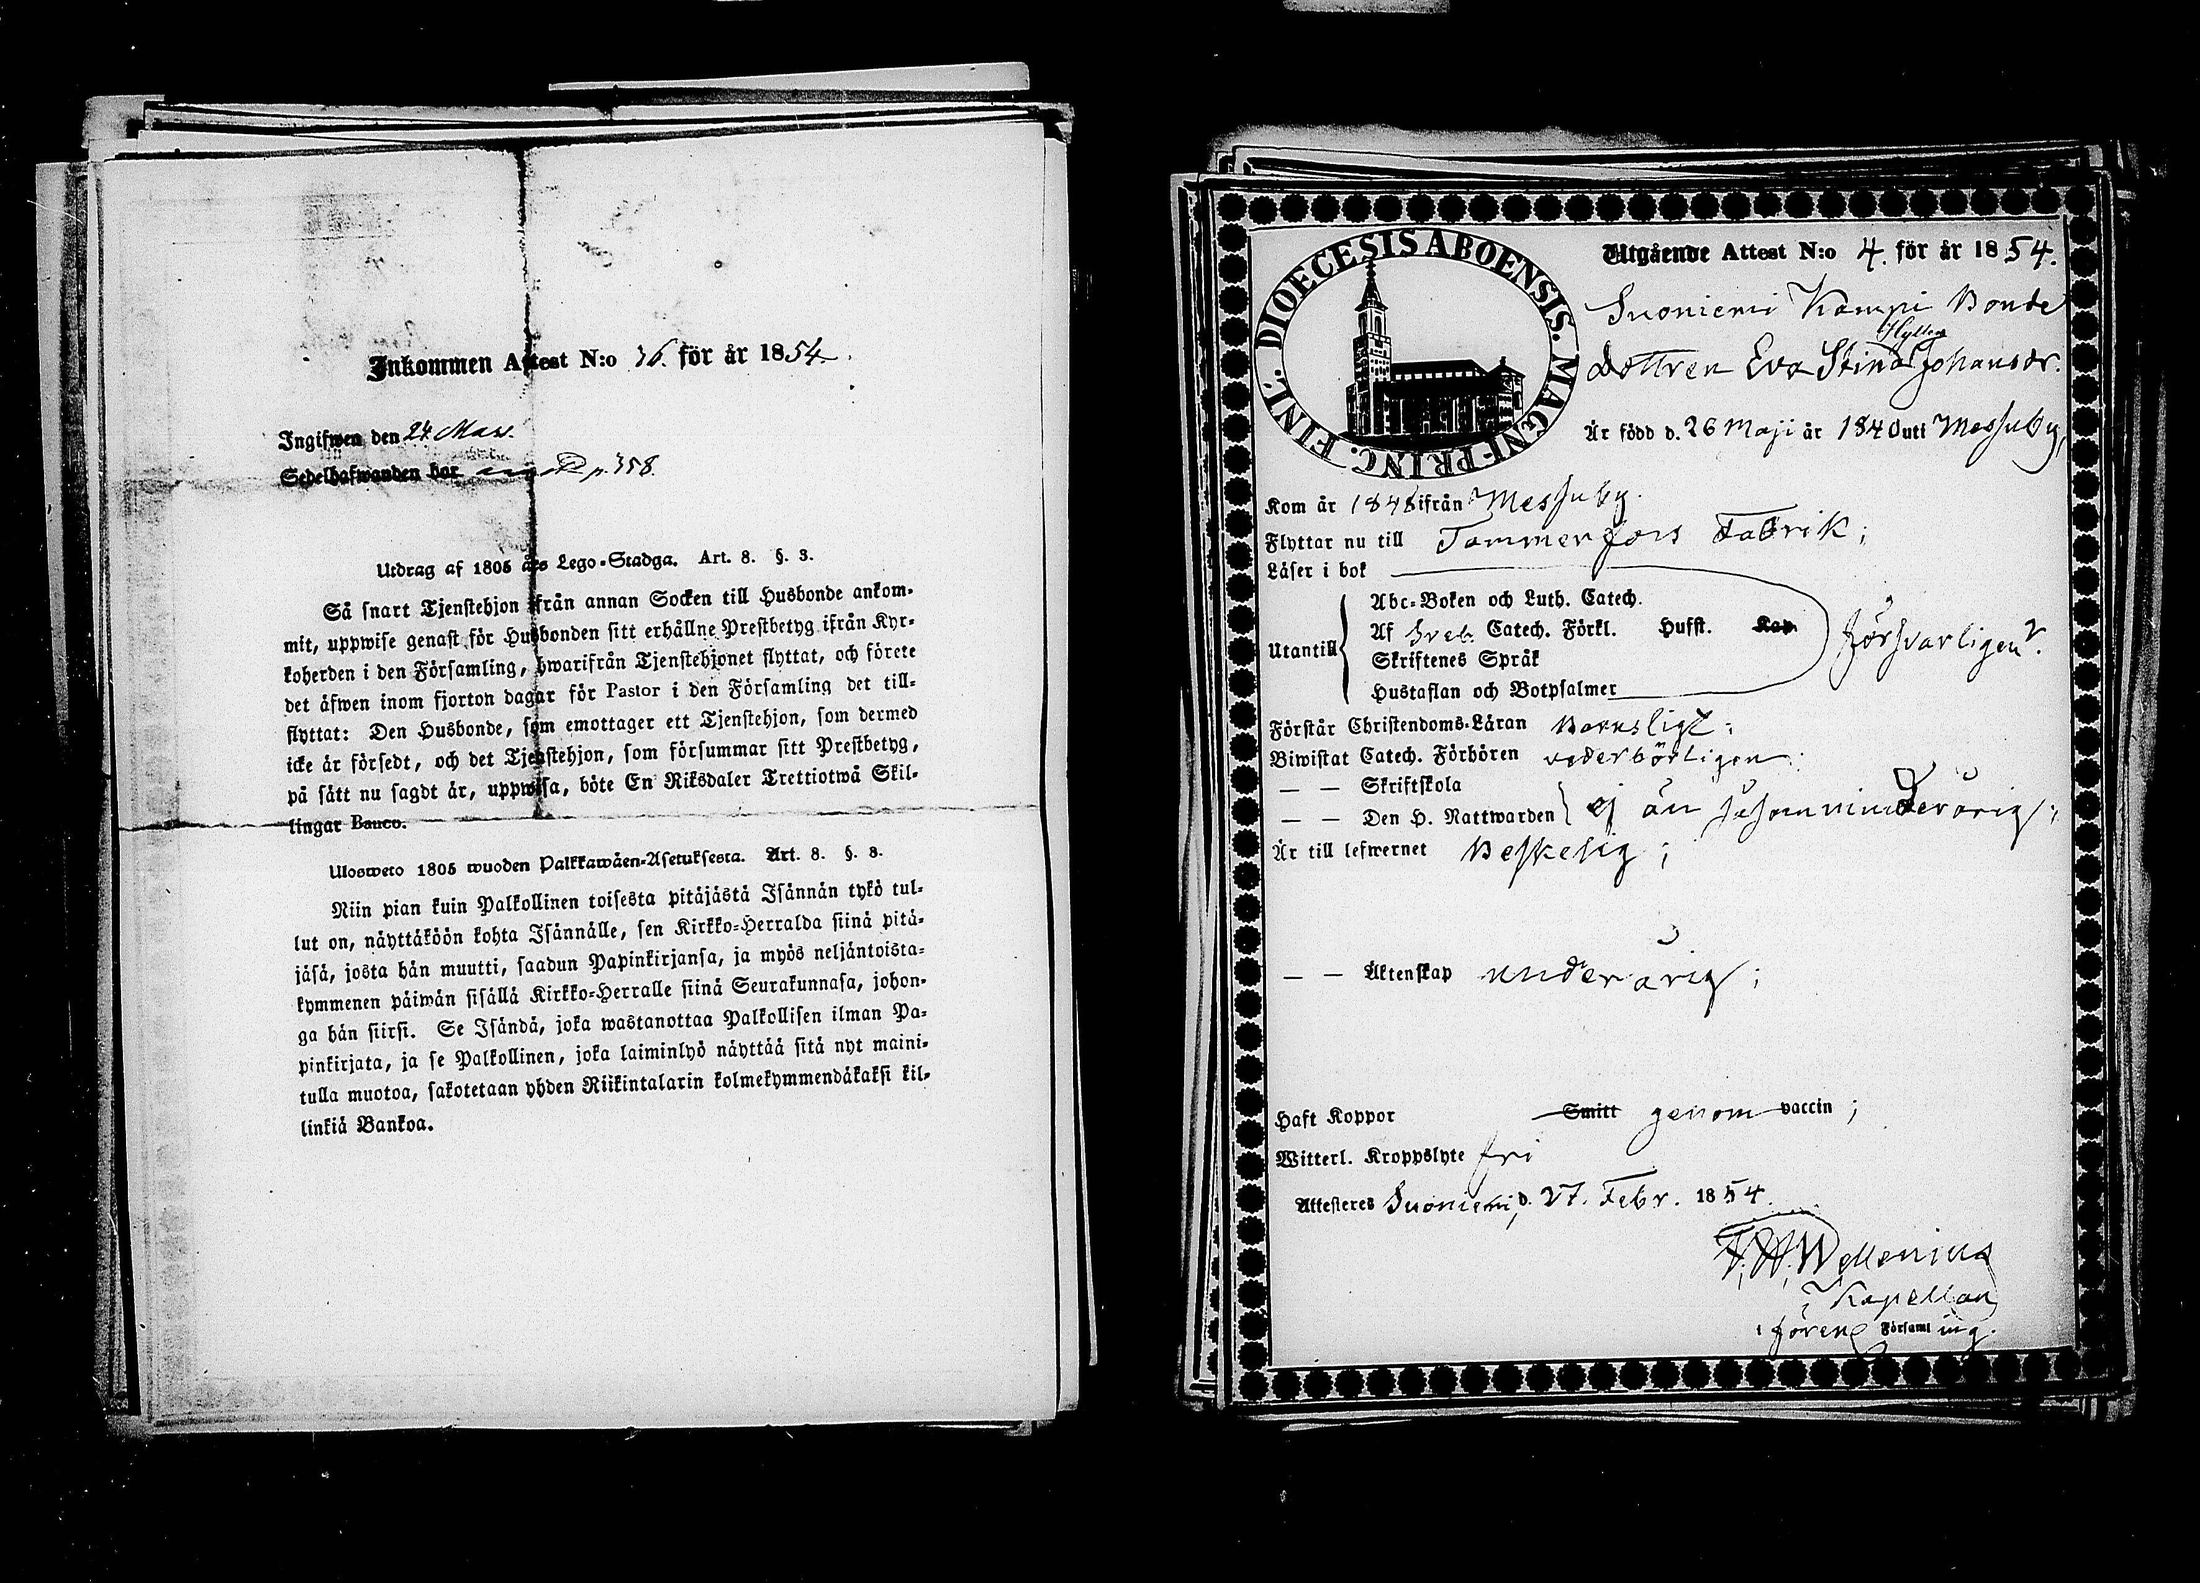 Inkommen Attest N:o 36. för år 1854.
Ingifwen den 24 Mars.
Sedelhafwanden bor p. 358.
Utdrag af 1805 års Lego-Stadga. Art. 8. §. 3.
Så snart Tjenstehjon ifrån annan Socken till Husbonde ankom-
mit, uppwise genast för Husbonden sitt erhållne Prestbetyg ifrån Kyr-
koherden i den Församling, hwarifrån Tjenstehjonet flyttat, och förete
det äfwen inom fjorton dagar för Pastor i den Församling det till-
flyttat: Den Husbonde, som emottager ett Tjenstehjon, som dermed
icke är försedt, och det Tjenstehjon, som försummar sitt Prestbetyg,
på sätt nu sagdt är, uppwisa, böte En Riksdaler Trettiotwå Skil-
lingar Banco.
Ulosweto 1805 wuoden Palkkawäen-Asetuksesta. Art. 8. §. 3.
Niin pian kuin Palkollinen toisesta pitäjästä Isännän tykö tul-
lut on, näyttäköön kohta Isännälle, sen Kirkko-Herralda siinä pitä-
jäsä, josta hän muutti, saadun Papinkirjansa, ja myös neljäntoista-
kymmenen päiwän sisällä Kirkko-Herralle siinä Seurakunnasa, johon-
ga hän siirsi. Se Isändä, joka wastanottaa Palkollisen ilman Pa-
pinkirjata, ja se Palkollinen, joka laiminlyö näyttää sitä nyt maini-
tulla muotoa, sakotetaan yhden Riikintalarin kolmekymmendäkaksi kil-
linkiä Bankoa.
DIOECESIS ABOENSIS. MAGNI-PRINC. FINL.
Utgående Attest N:o 4. för år 1854.
Suoniemi Kampi Bonde
Dottren Eva Stina Johansdr.
Är född d. 26 Maji år 1840 uti Messuby,
Kom år 1848 ifrån Messuby.
Flyttar nu till Tammerfors Fabrik;
Läser i bok
Utantill
Abc-Boken och Luth. Catech.
Af Sveb. Catech. Förkl. Hufst. Kap.
Skriftenes Språk
Hustaflan och Botpsalmer
försvarligen.
Förstår Christendoms-Läran Barnsligt;
Biwistat Catech. Förhören vederbörligen;
— — Skriftskola
— — Den H. Nattwarden ej än såsom minderårig;
Är till lefwernet Beskelig;
— — Äktenskap underårig;
Haft Koppor Smitt genom vaccin;
Witterl. Kroppslyte fri
Attesteras Suoniemi, d. 27. Febr. 1854.
Wellenius
Kapellan
i fören. Församling.